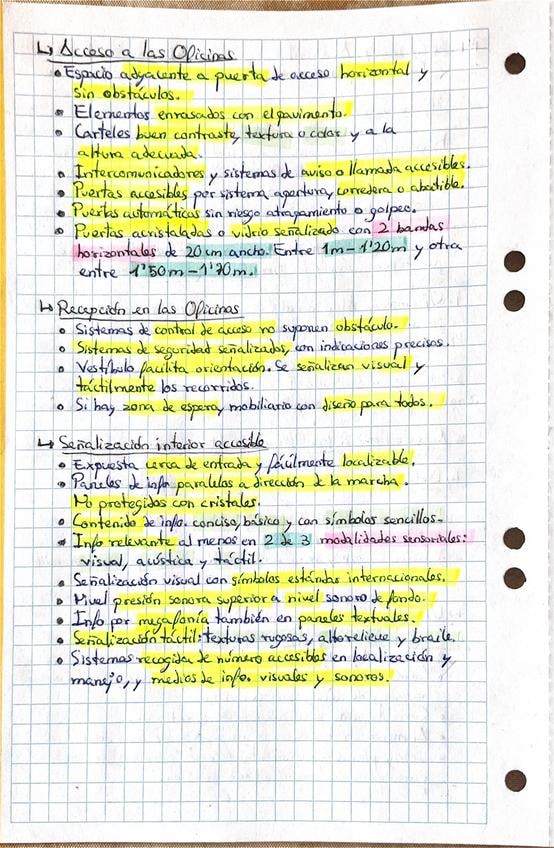 ↳ Acceso a las Oficinas
• Espacio adyacente a puerta de acceso horizontal y
sin obstáculos.
• Elementos enrasados con el pavimento.
• Carteles buen contraste, textura o color y a la
altura adecuada.
• Intercomunicadores y sistemas de aviso o llamada accesibles.
• Puertas accesibles por sistema apertura, corredera o abatible.
• Puertas automáticas sin riesgo atrapamiento o golpeo.
• Puertas acristaladas o vidrio señalizado con 2 bandas
horizontales de 20 cm ancho. Entre 1m-1'20m y otra
entre 1'50m-1'70m.
↳ Recepción en las Oficinas
• Sistemas de control de acceso no suponen obstáculo.
• Sistemas de seguridad señalizados, con indicaciones precisos.
• Vestíbulo facilita orientación. Se señalizan visual y
táctilmente los recorridos.
• Si hay zona de espera, mobiliario con diseño para todos.
↳ Señalización interior accesible
• Expuesta cerca de entrada y fácilmente localizable.
• Paneles de info paralelos a dirección de la marcha.
No protegidos con cristales.
• Contenido de info. concisa, básica y con símbolos sencillos.
• Info relevante al menos en 2 de 3 modalidades sensoriales:
visual, acústica y táctil.
• Señalización visual con símbolos estándas internacionales.
• Nivel presión sonora superior a nivel sonoro de fondo.
• Info por megafonía también en paneles textuales.
• Señalización táctil: texturas rugosas, altorelieve y braile.
• Sistemas recogida de número accesibles en localización y
manejo, y medios de info. visuales y sonoros.